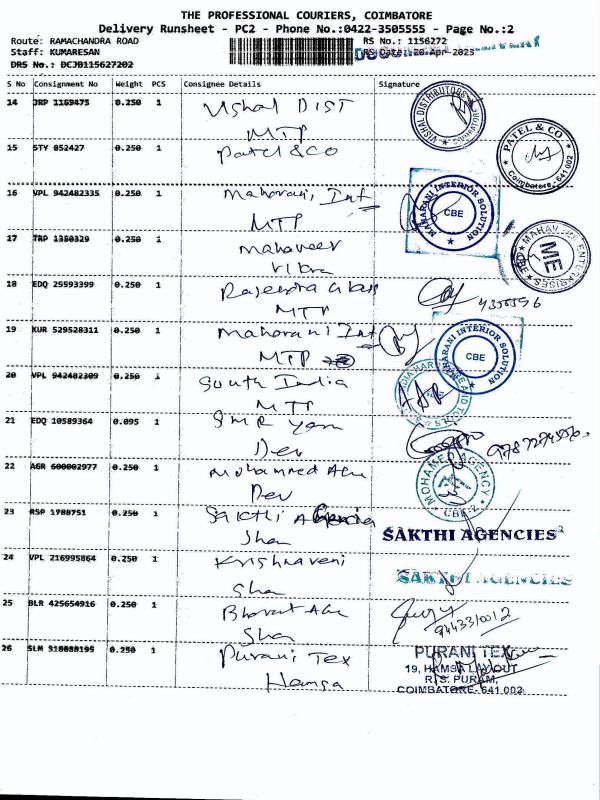 THE PROFESSIONAL COURIERS, COIMBATORE
Delivery Runsheet - PC2 - Phone No.:0422-3505555 - Page No.:2
Route: RAMACHANDRA ROAD RS No.: 1156272
Staff: KUMARESAN RS Date: 20-Apr-2023
DRS No.: DCJB115627202
S No Consignment No Weight PCS Consignee Details Signature
14 JRP 1169475 0.250 1 Vishal DIST
MTP
VISHAL DISTRIBUTORS
COIMBATORE
15 STY 852427 0.250 1 Patel & CO
PATEL & CO
Coimbatore - 641 002
16 VPL 942482335 0.250 1 Maharani, Int
MTP
MAHARANI INTERIOR SOLUTION
CBE
17 TRP 1350329 0.250 1 Mahaveer
MAHAVEER ENTERPRISES
ME
18 EDQ 25593399 0.250 1 Rajendra Glass
MTP
19 KUR 529528311 0.250 1 Maharani Int
MTP
MAHARANI INTERIOR SOLUTION
CBE
20 VPL 942482309 0.250 1 South India
MTP
21 EDQ 10589364 0.095 1 SMR Yarn
Dev
22 AGR 600002977 0.250 1 Mohammed Age
Dev
MOHAMED AGENCY
CBE-2
23 RSP 1788751 0.250 1 Sakthi Agencia
Shan
SAKTHI AGENCIES
24 VPL 216995864 0.250 1 Krishnaveni
Sha
SAKTHI AGENCIES
25 BLR 425654916 0.250 1 Bharat Age
Sha
9443310012
26 SLM 318088195 0.250 1 Purani Tex
Hamsa
PURANI TEX
19, HAMSA LAYOUT
R.S. PURAM,
COIMBATORE-641 002